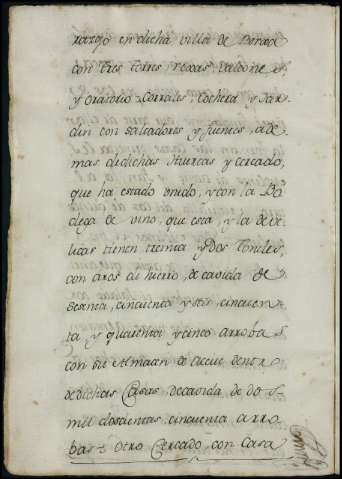 en dicha villa de
con tres torres rexas, valcones,
y oratorio, Corrales, Cochera y Jar
din con saltadores y fuentes, ade
mas de dichas Huertas y cercado,
que ha estado unido, y con la Bo
dega de vino, que esta, y la de de
tienen treinta y dos toneles,
con aros de hierro, de cavida de
sesenta, cincuenta y seis, cincuen
ta y quarenta y cinco arrobas
con su Almacen de aceite dentro
de dichas Casas de cavida de dos
mil doscientas cincuenta arro
bas = Otro Cercado con Casa